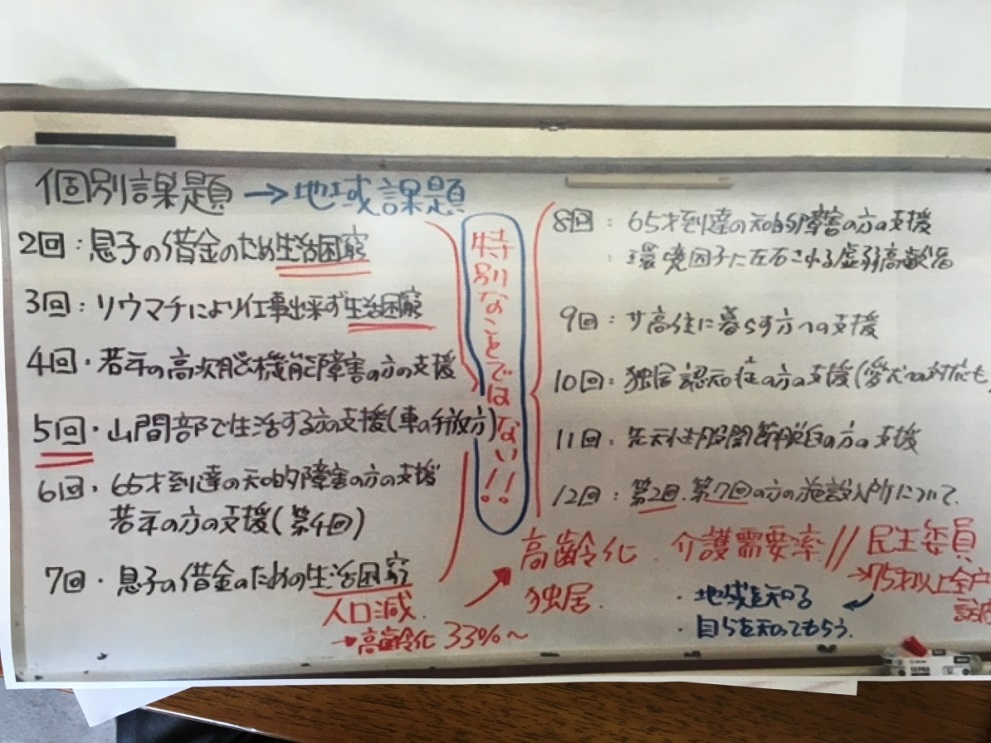 個別課題→地域課題
2回：息子の借金のため生活困窮
3回：リウマチにより仕事出来ず生活困窮
4回・若年の高次脳機能障害の方の支援
5回・山間部で生活する方の支援(車の手放方)
6回・65才到達の知的障害の方の支援
若年の方の支援(第4回)
7回・息子の借金のための生活困窮
人口減
→高齢化 33%～
特別なことではない!!
8回：65才到達の知的障害の方の支援
：環境因子に左右される虚弱高齢者
9回：サ高住に暮らす方への支援
10回：独居認知症の方の支援(愛犬への対応も
11回：先天性股関節脱臼の方の支援
12回：第2回.第7回の方の施設入所について.
高齢化.介護需要率//民生委員
独居.
→75才以上全戸
訪
・地域を知る
・自らを知ってもらう.